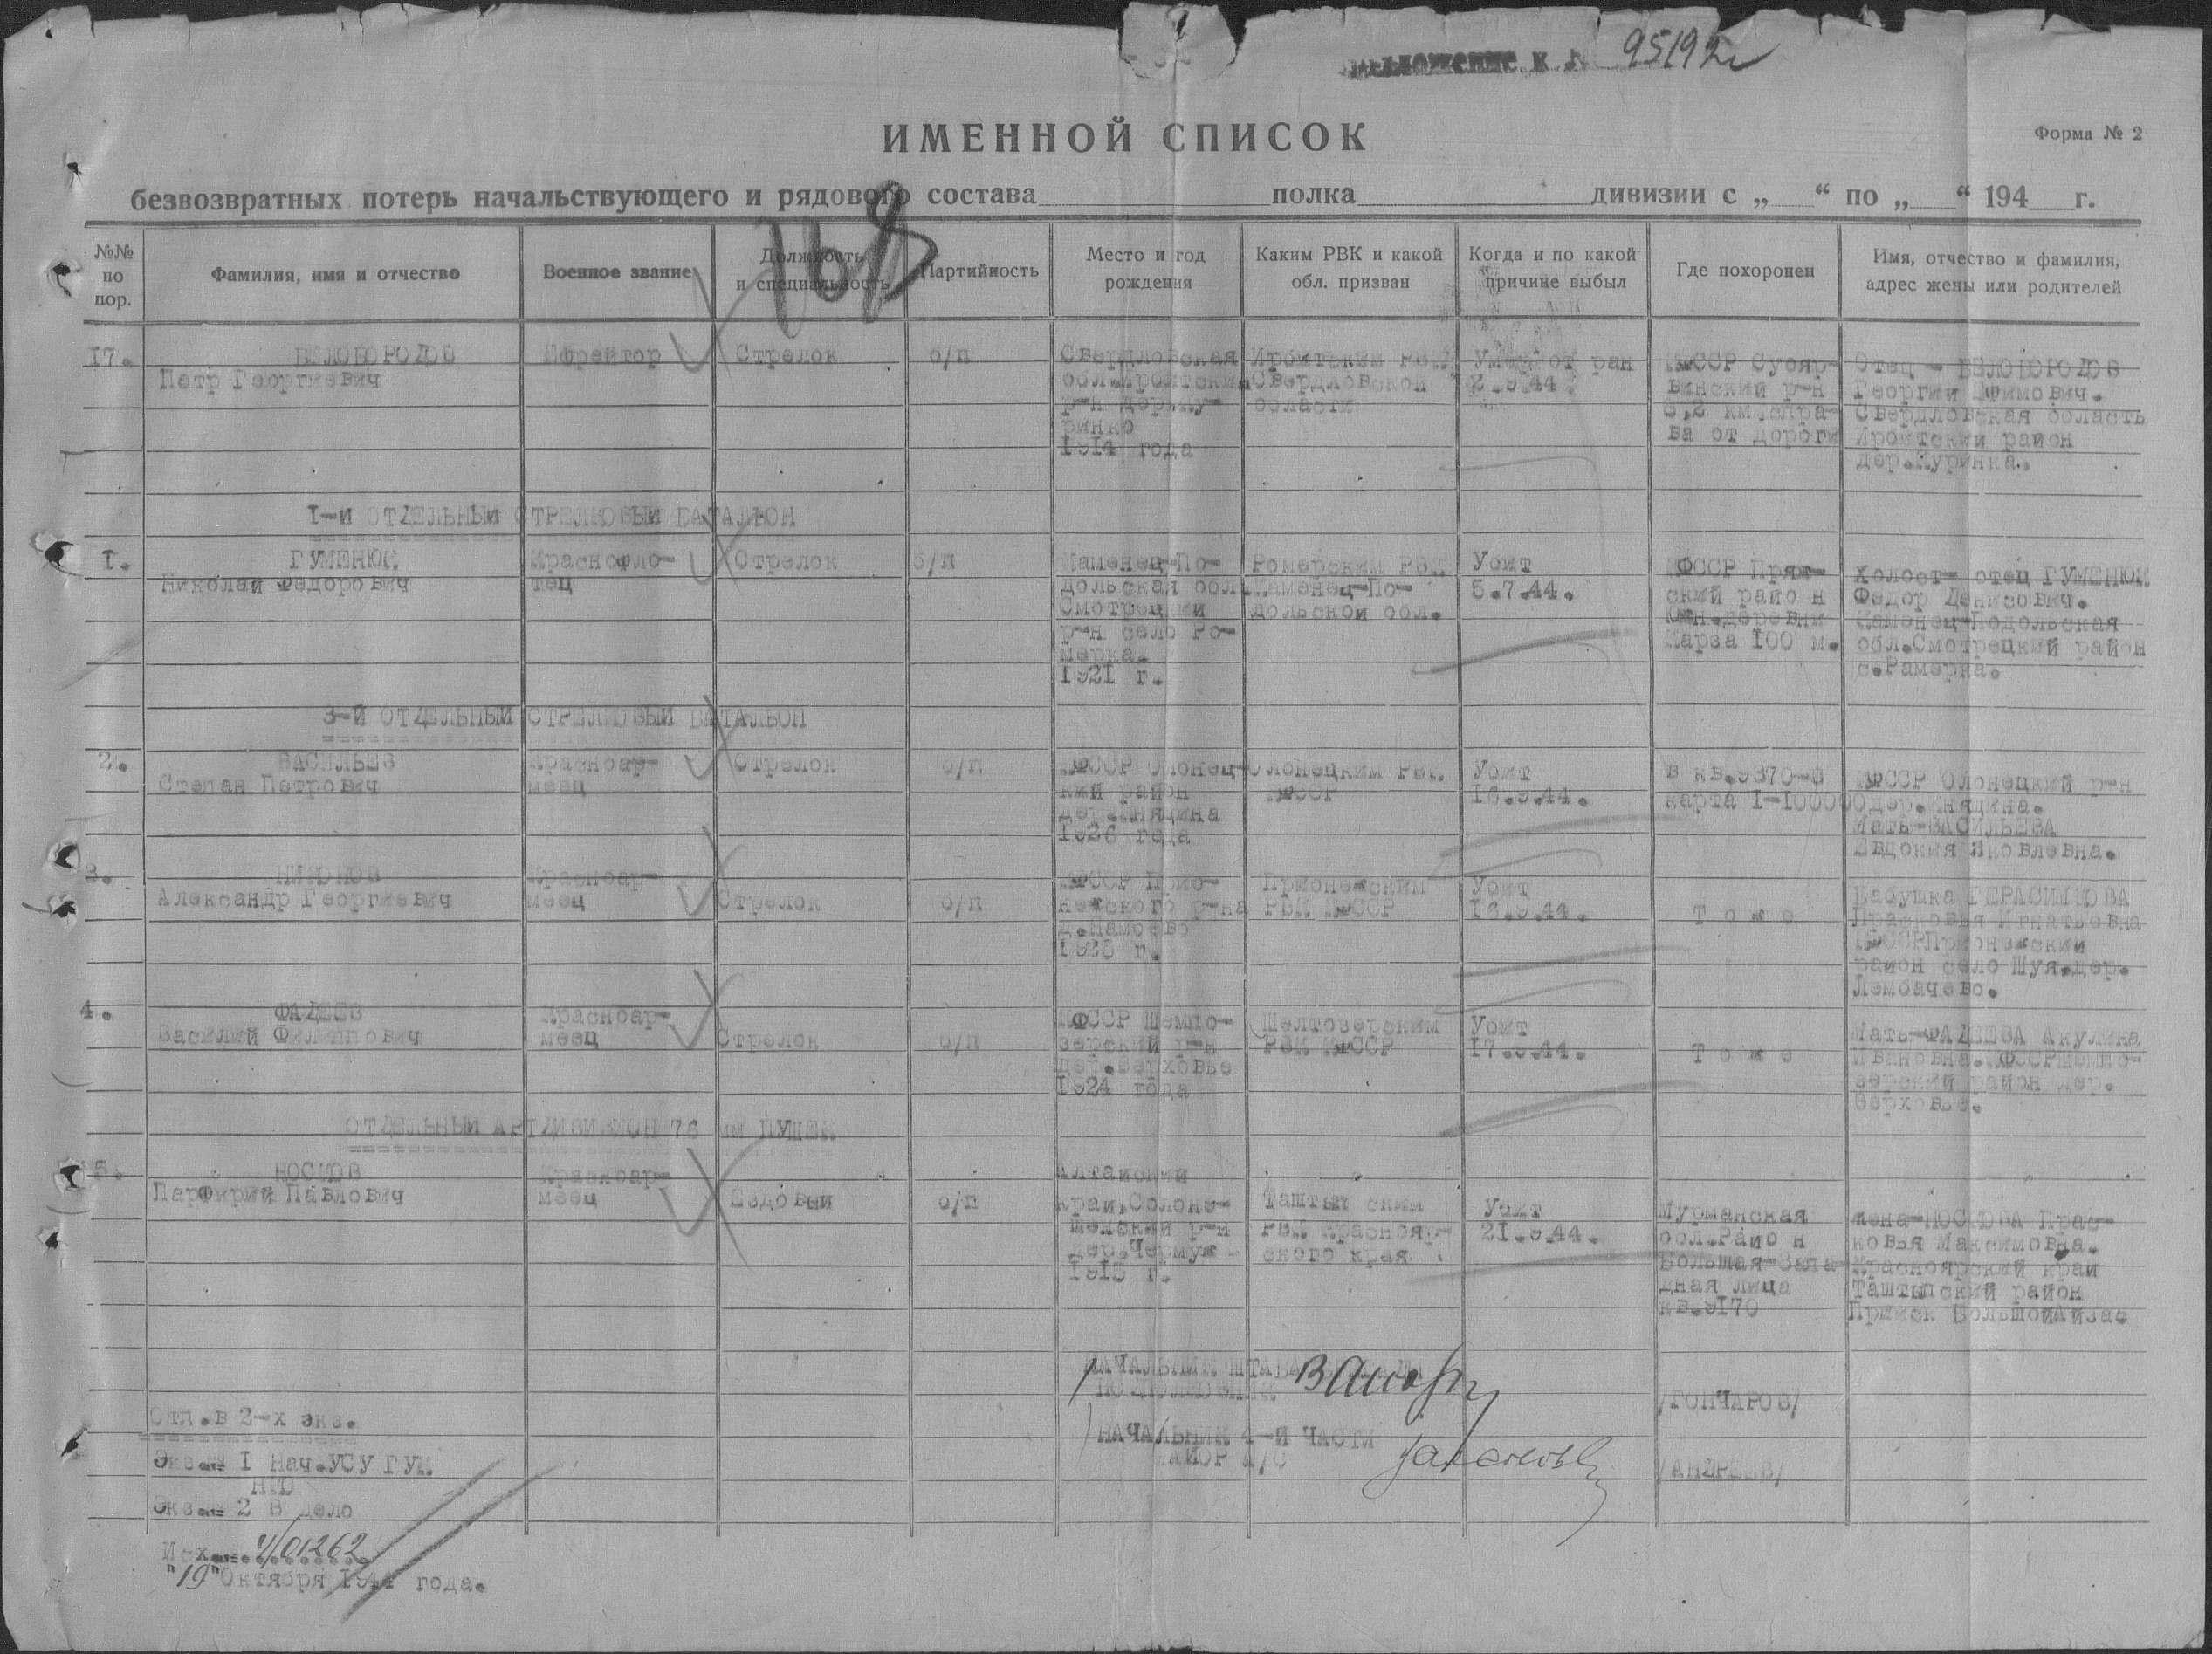 95192
ИМЕННОЙ СПИСОК
Форма № 2
безвозвратных потерь начальствующего и рядового состава полка дивизии с „ “ по „ “ 194 г.
168
№№ по пор.
Фамилия, имя и отчество
Военное звание
Должность и специальность
Партийность
Место и год рождения
Каким РВК и какой обл. призван
Когда и по какой причине выбыл
Где похоронен
Имя, отчество и фамилия, адрес жены или родителей
17.
БЕЛОБОРОДОВ
Петр Георгиевич
Ефрейтор
Стрелок
б/п
Свердловская
обл.Ирбитский
р-н
1914 года
Ирбитским РВК
Свердловской
области
Умер от ран
КФССР Суояр-
винский р-н
км.спра-
ва от дороги
Отец - БЕЛОБОРОДОВ
Георгий Ефимович.
Свердловская область
Ирбитский район
дер.Куринка.
1-й ОТДЕЛЬНЫЙ СТРЕЛКОВЫЙ БАТАЛЬОН
1.
ГУМЕНЮК
Николай Федорович
Краснофло-
тец
Стрелок
б/п
Каменец-По-
дольская обл.
Смотрецкий
р-н село Ро-
мерка.
1921 г.
Ромерским РВК
Каменец-По-
дольской обл.
Убит
5.7.44.
КФССР Пряж-
ский район
деревни
Карза 100 м.
Холост- отец ГУМЕНЮК
Федор Денисович.
Каменец-Подольская
обл.Смотрецкий район
с.Рамерка.
3-й ОТДЕЛЬНЫЙ СТРЕЛКОВЫЙ БАТАЛЬОН
2.
ВАСИЛЬЕВ
Степан Петрович
Красноар-
меец
Стрелок
б/п
КФССР Олонец-
кий район
1926 года
Олонецким РВК
КФССР
Убит
16.9.44.
в кв.9370-
карта 1-100000
КФССР Олонецкий р-н
Мать-ВАСИЛЬЕВА
Евдокия Яковлевна.
3.
НИКОНОВ
Александр Георгиевич
Красноар-
меец
Стрелок
б/п
КФССР Прио-
нежского р-на
Прионежским
РВК КФССР
Убит
16.9.44.
Т о ж е
Бабушка ГЕРАСИМОВА
Прасковья Игнатьевна
КФССР Прионежский
район село Шуя.дер.
Лембачево.
4.
ФАДЕЕВ
Василий Филиппович
Красноар-
меец
Стрелок
б/п
КФССР
зерский р-н
дер.Верховье
1924 года
Шелтозерским
РВК КФССР
Убит
17.9.44.
Т о ж е
Мать-ФАДЕЕВА Акулина
Ивановна.
зерский район дер.
Верховье.
ОТДЕЛЬНЫЙ АРТДИВИЗИОН 76 мм ПУШЕК
5.
НОСКОВ
Парфирий Павлович
Красноар-
меец
Ездовый
б/п
Алтайский
край,Солоне-
шенский р-н
Таштыпским
РВК Краснояр-
ского края
Убит
21.9.44.
Мурманская
обл.Район
Большая-Запа-
дная лица
кв.9170
жена-НОСКОВА Прас-
ковья Максимовна.
Красноярский край
Таштыпский район
Прииск Большой
НАЧАЛЬНИК ШТАБА
/ГОНЧАРОВ/
НАЧАЛЬНИК 4-й ЧАСТИ
МАЙОР А/С
/АНДРЕЕВ/
Отп.в 2-х экз.
Экз. 1 Нач.УСУ ГУК
НКО
Экз. 2 В дело
Исх. 4/01262
"19" Октября 1944 года.